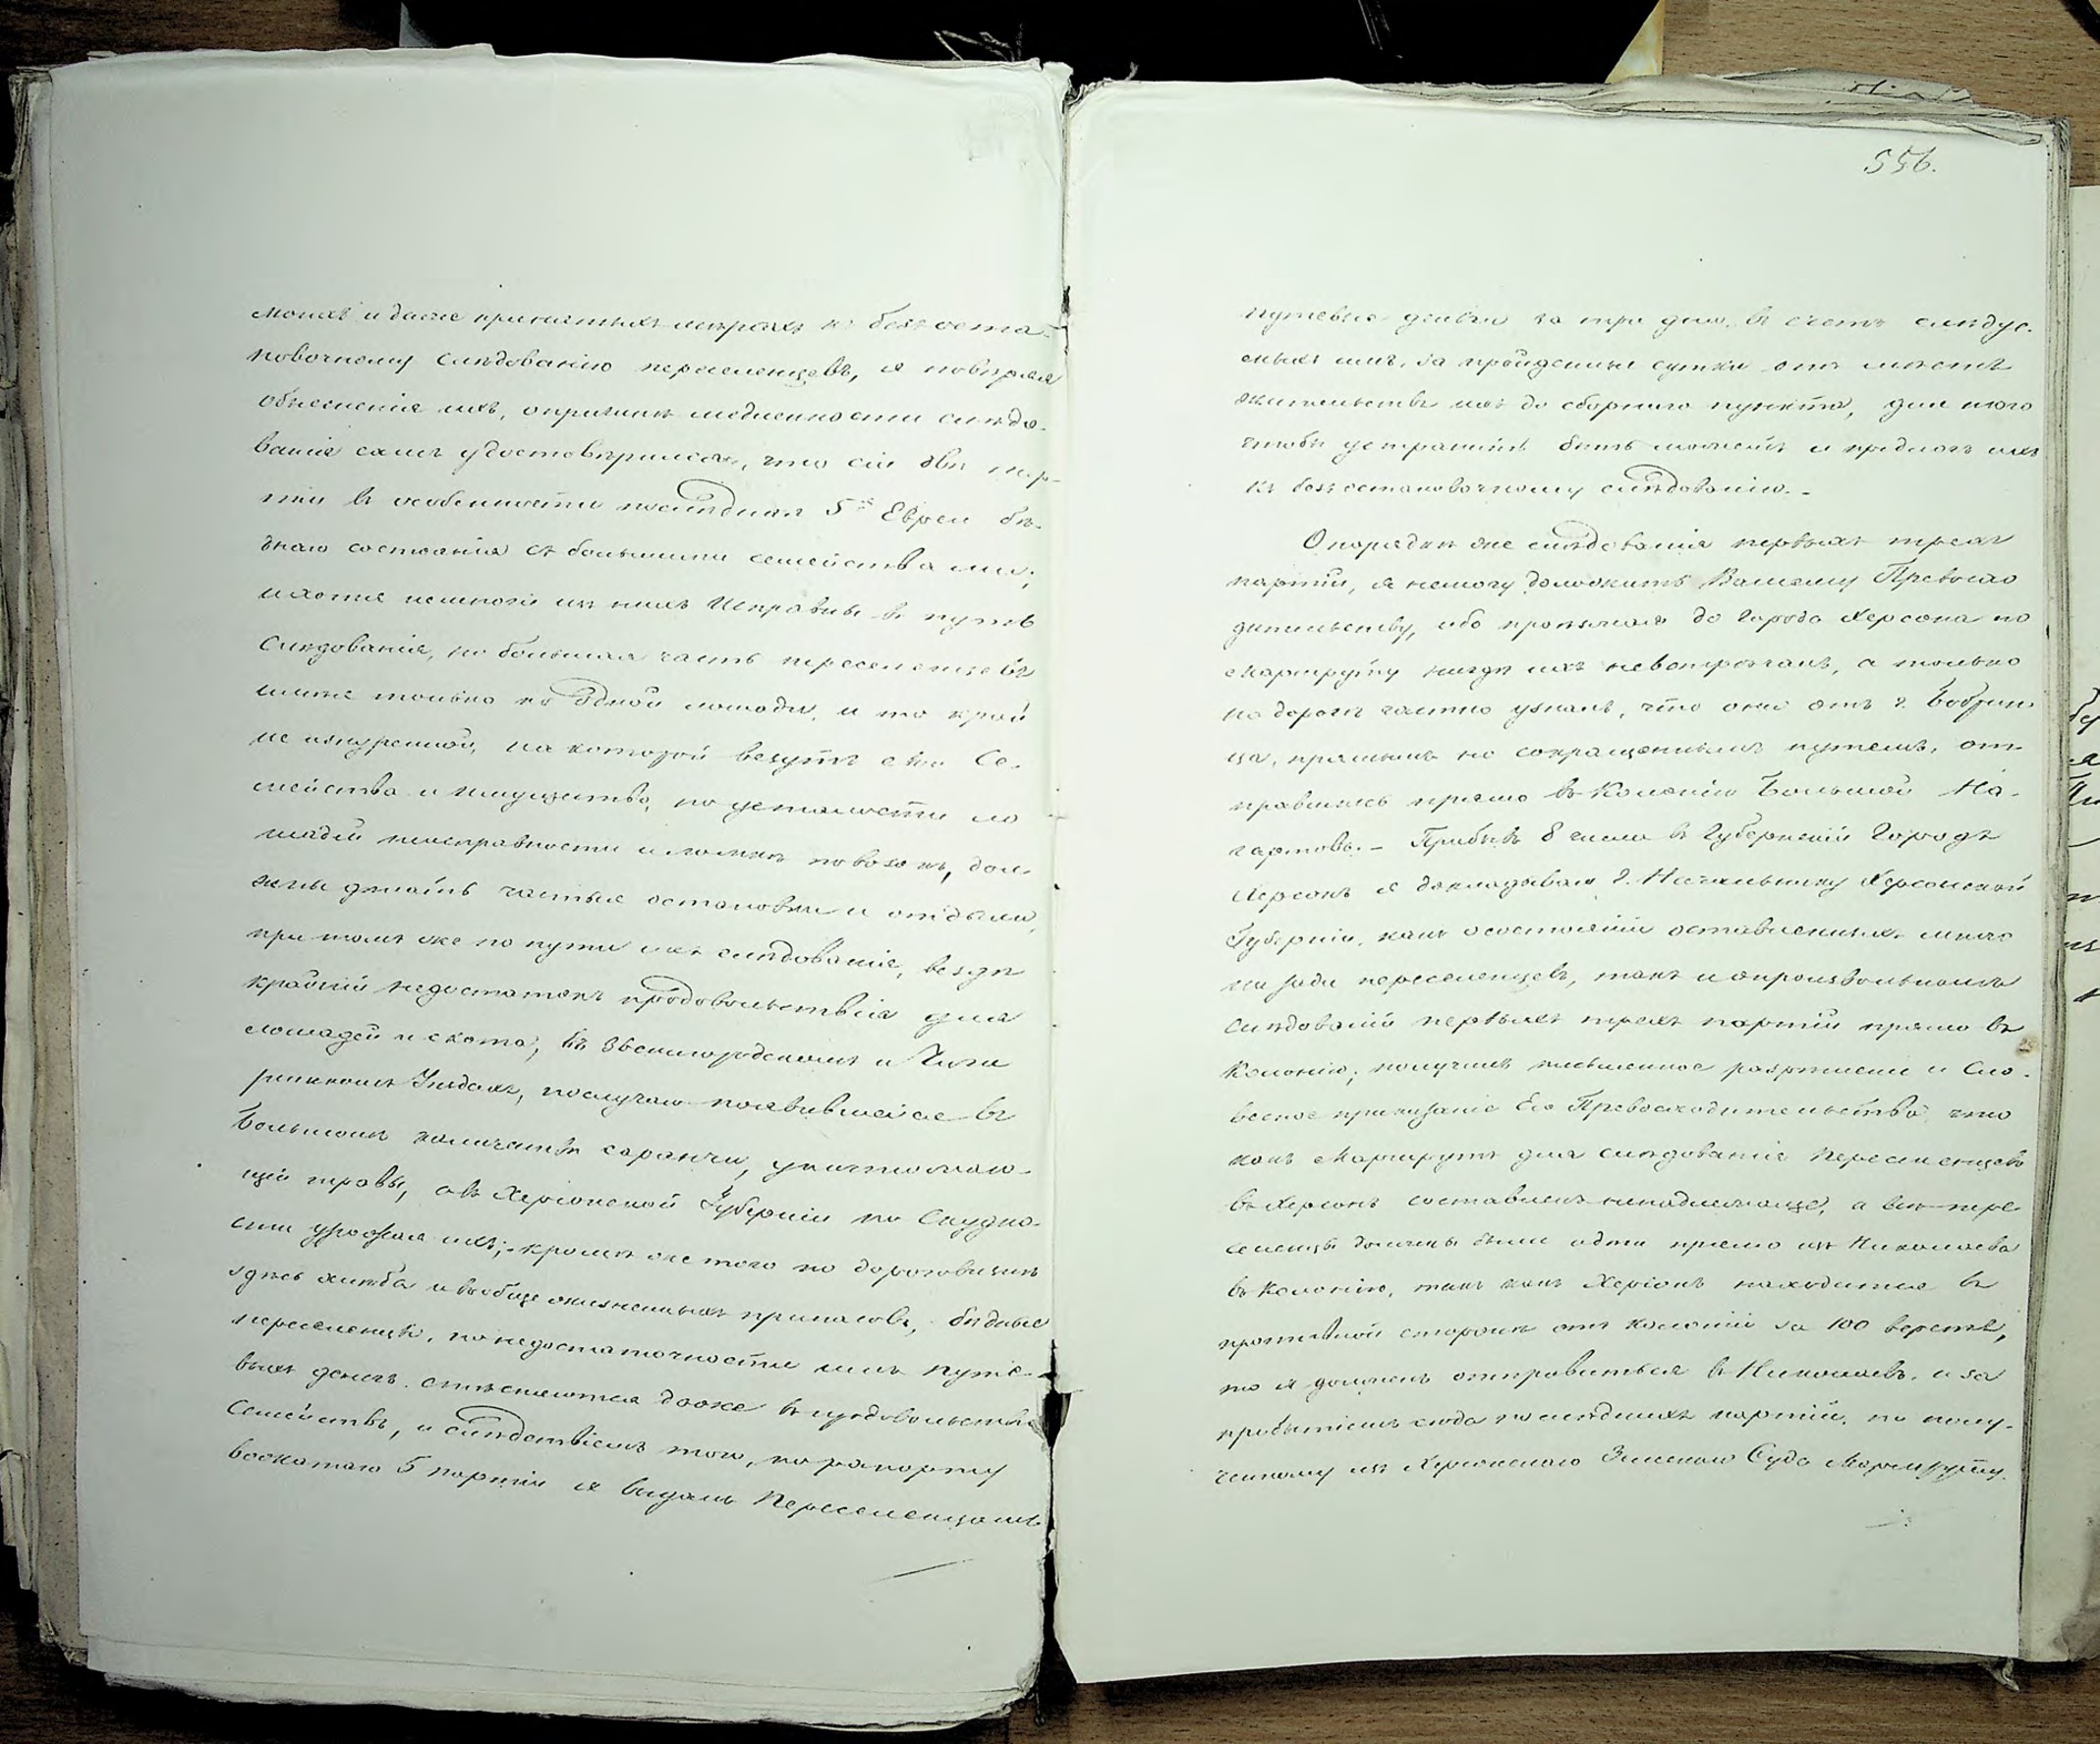 моихъ и далее принятыхъ мерахъ къ безъоста-
новочному слѣдованію переселенцевъ, я повѣряя
объясненія ихъ, опричинѣ медленности слѣдо-
ванія самъ удостовѣрился, что сіи двѣ пар-
тіи въ особенности послѣдняя 5я Евреи бѣ-
днаго состоянія съ большими семействами,
и хотя немногіе изъ нихъ исправны въ пути
слѣдованія, но большая часть переселенцевъ
имѣя только по одной лошади, и то край
не изнуренной, на которой везутъ свои се-
мейства и имущество, по усталости ло
шадей неисправности и ломкѣ повозокъ, дол-
жны дѣлать частыя остановки и отдыхи,
при томъ же по пути ихъ слѣдованія, вездѣ
крайній недостатокъ продовольствія для
лошадей и скота, въ Звенигородскомъ и Чиги
ринскомъ Уѣздахъ, послучаю появившейся въ
большомъ количествѣ саранчи, уничтожаю-
щій травы, а въ Херсонской Губерніи по скудно-
сти урожая ихъ; кромѣ же того по дороговизнѣ
здѣсь хлѣба и вообще жизненныхъ припасовъ, бѣдные
переселенцы, по недостаточности имъ путе-
выхъ денегъ стѣсняются даже въ продовольствіи
семействъ, и слѣдствіемъ того, по рапорту
вожатаго 5 партіи я выдалъ Переселенцамъ
556.
путевые деньги за три дня, въ счетъ слѣдуе-
мыхъ имъ, за пройденныя сутки отъ мѣстъ
жительствъ ихъ до сборнаго пункта, для того
чтобы устранить быть можетъ и предлогъ ихъ
къ безъостановочному слѣдованію.-
О порядкѣ же слѣдованія первыхъ трехъ
партій, я немогу доложить Вашему Превосхо
дительству, ибо проѣзжая до города Херсона по
маршруту нигдѣ ихъ невстрѣчалъ, а только
на дорогѣ частно узналъ, что они отъ г. Бобрин
ца, прямымъ но сокращеннымъ путемъ, от-
правились прямо въ Колонію Большой На-
гартовъ.- Прибывъ 8 числа въ Губернскій городъ
Херсонъ я докладывалъ Г. Начальнику Херсонской
Губерніи, какъ о состояніи оставленныхъ мною
на зади переселенцевъ, такъ и опроизвольномъ
слѣдованіи первыхъ трехъ партій прямо въ
Колонію; получивъ письменное разрѣшеніе и сло-
весное приказаніе Его Превосходительства, что
какъ Маршрутъ для слѣдованія Переселенцевъ
въ Херсонъ составленъ ненадлежаще, а всѣ пере-
селенцы должны были идти прямо изъ Николаева
въ Колонію, такъ какъ Херсонъ находится въ
противной сторонѣ отъ колоній за 100 верстъ,
то я долженъ отправиться въ Николаевъ, и за
прибытіемъ сюда послѣднихъ партій, по полу-
ченному изъ Херсонскаго Земскаго Суда Маршруту